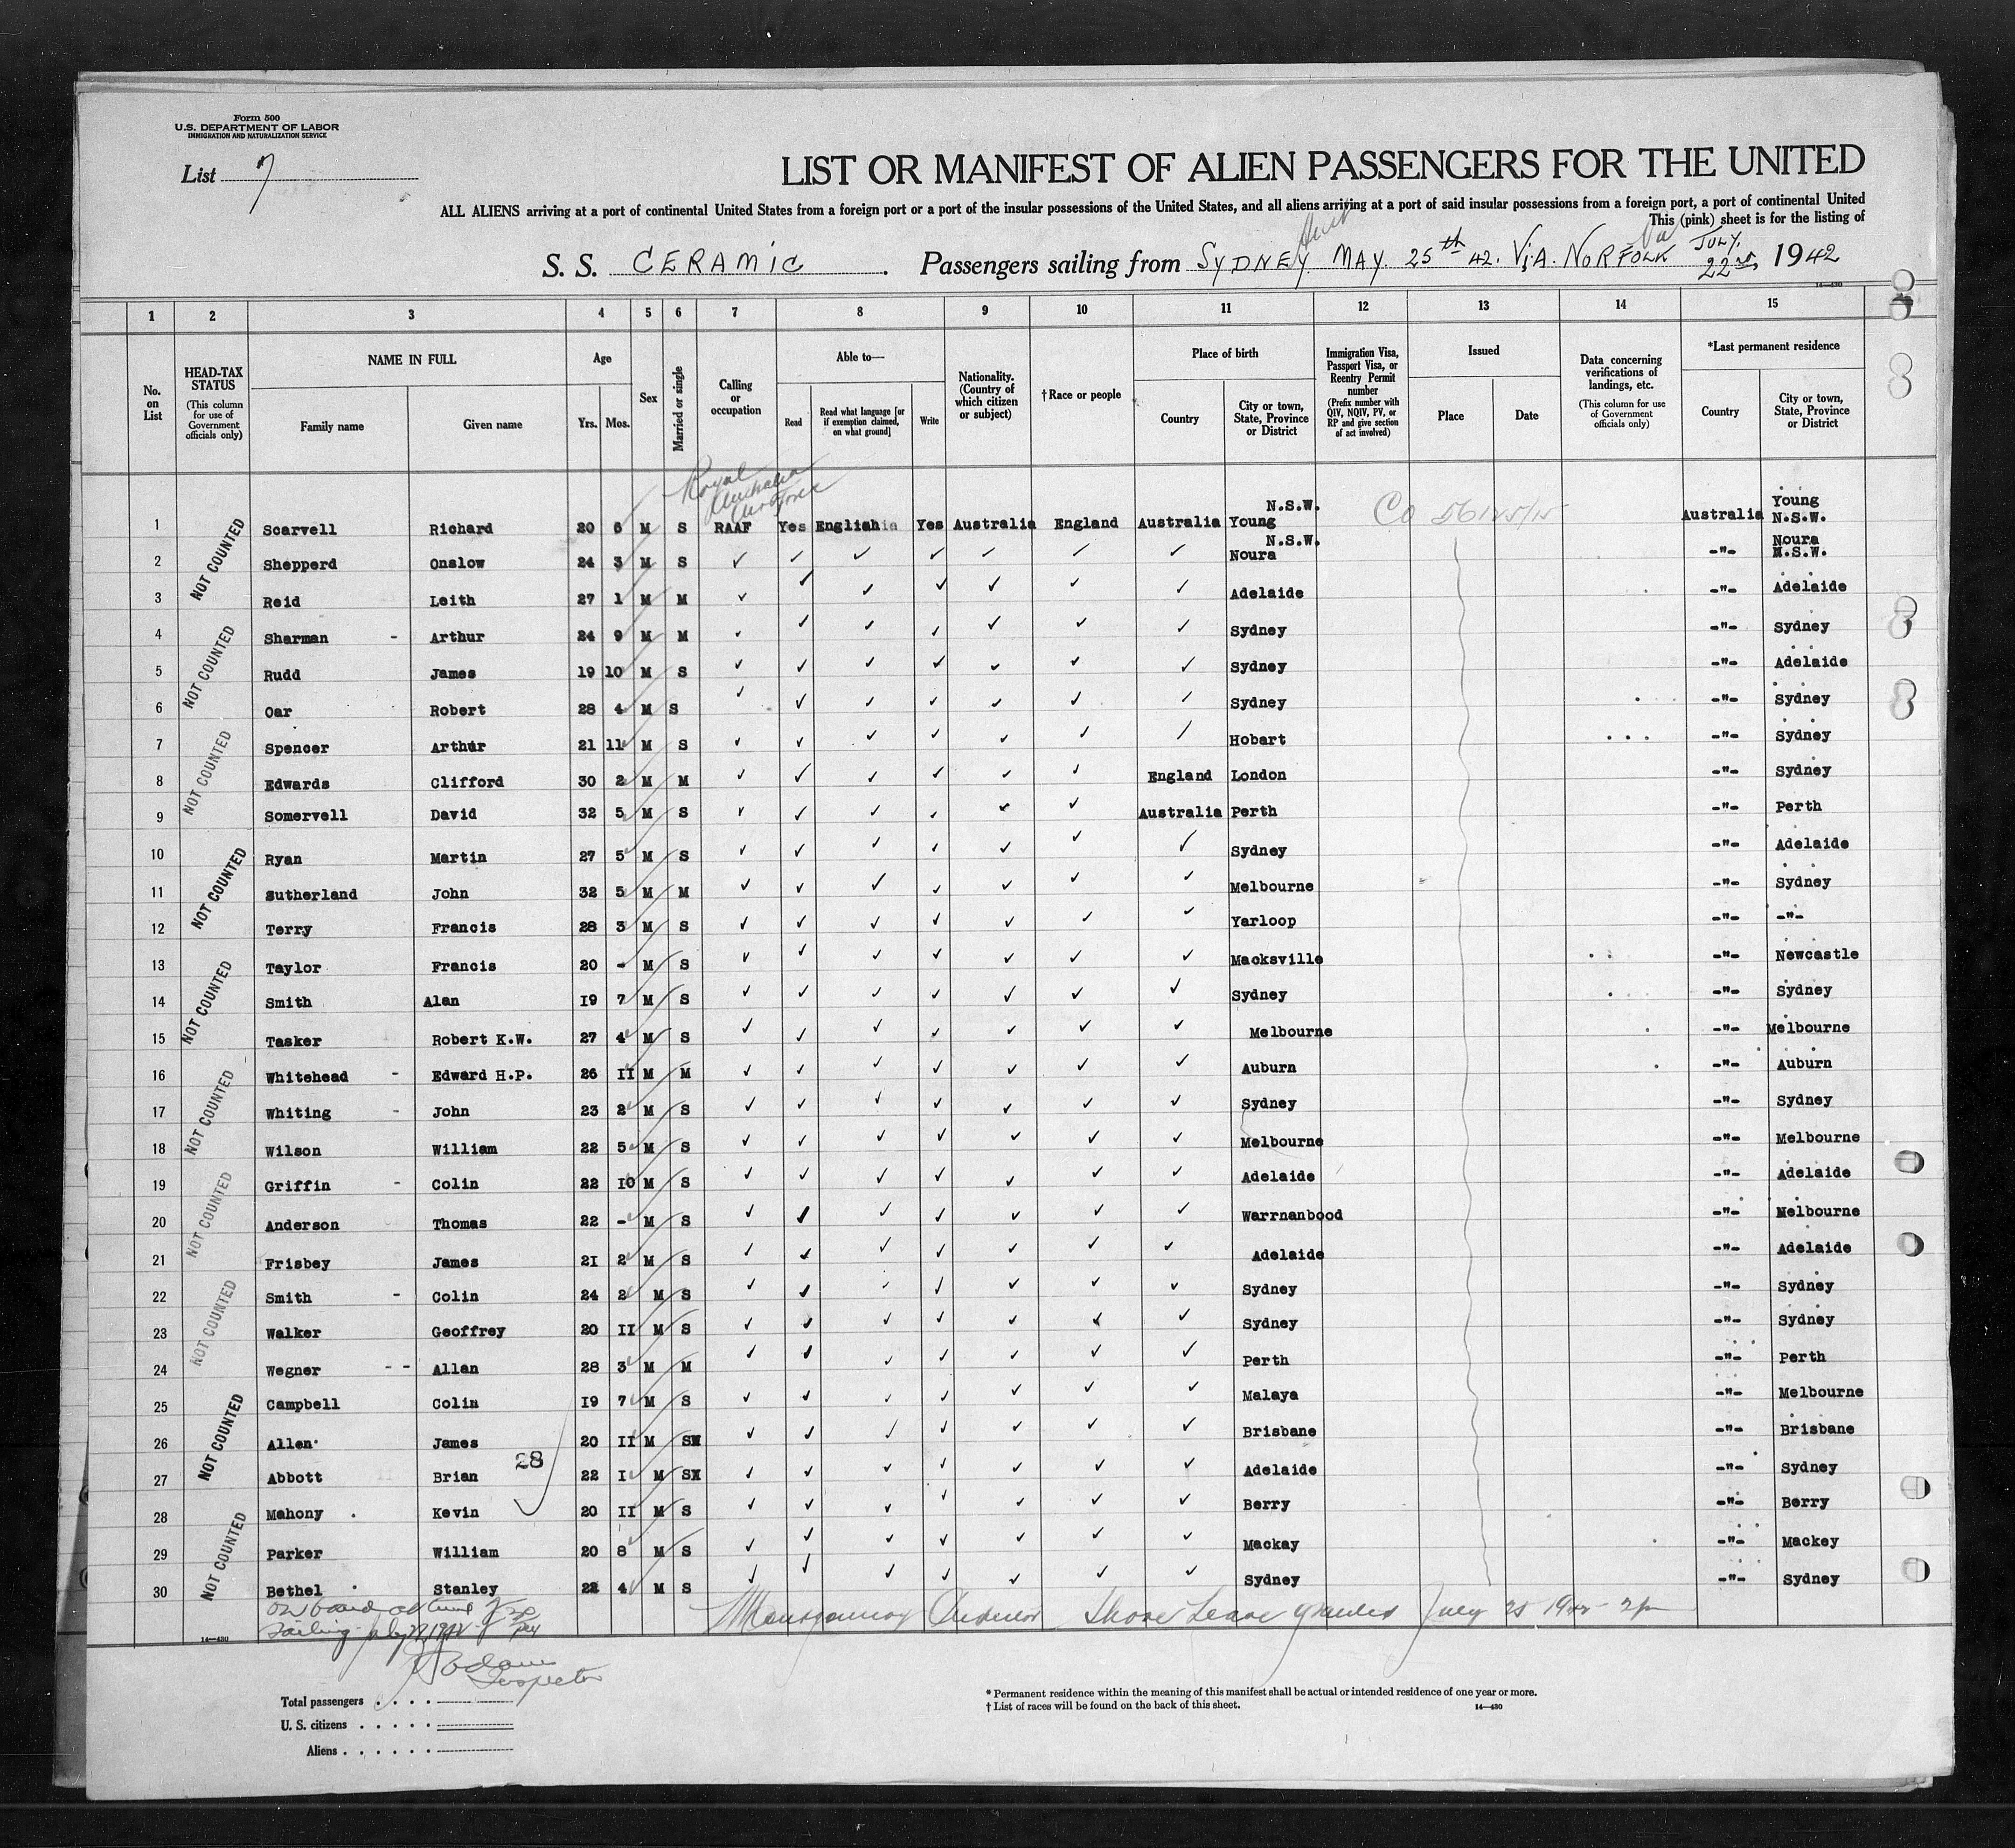 Form 500
U.S. DEPARTMENT OF LABOR
IMMIGRATION AND NATURALIZATION SERVICE
List 7
LIST OR MANIFEST OF ALIEN PASSENGERS FOR THE UNITED
ALL ALIENS arriving at a port of continental United States from a foreign port or a port of the insular possessions of the United States, and all aliens arriving at a port of said insular possessions from a foreign port, a port of continental United
This (pink) sheet is for the listing of
S. S. CERAMIC . Passengers sailing from SYDNEY Aust MAY. 25th 42. ViA. NORFOLK Va JULY. 22nd, 1942
14—430
1 2 3 4 5 6 7 8 9 10 11 12 13 14 15
No. on List
HEAD-TAX STATUS (This column for use of Government officials only)
NAME IN FULL
Family name Given name
Age
Yrs. Mos.
Sex
Married or single
Calling or occupation
Able to—
Read
Read what language [or if exemption claimed, on what ground]
Write
Nationality. (Country of which citizen or subject)
†Race or people
Place of birth
Country
City or town, State, Province or District
Immigration Visa, Passport Visa, or Reentry Permit number (Prefix number with QIV, NQIV, PV, or RP and give section of act involved)
Issued
Place Date
Data concerning verifications of landings, etc. (This column for use of Government officials only)
*Last permanent residence
Country
City or town, State, Province or District
Royal Australia Air Force
1 Scarvell Richard 20 6 M S RAAF Yes English Yes Australia England Australia Young N.S.W. Australia Young N.S.W.
2 Shepperd Onslow 24 3 M S ✓ ✓ ✓ ✓ ✓ ✓ ✓ Noura N.S.W. -"- Noura N.S.W.
3 Reid Leith 27 1 M M ✓ ✓ ✓ ✓ ✓ ✓ ✓ Adelaide -"- Adelaide
4 Sharman - Arthur 24 9 M M ✓ ✓ ✓ ✓ ✓ ✓ ✓ Sydney -"- Sydney
5 Rudd James 19 10 M S ✓ ✓ ✓ ✓ ✓ ✓ ✓ Sydney -"- Adelaide
6 Oar Robert 28 4 M S ✓ ✓ ✓ ✓ ✓ ✓ ✓ Sydney -"- Sydney
7 Spencer Arthur 21 11 M S ✓ ✓ ✓ ✓ ✓ ✓ ✓ Hobart -"- Sydney
8 Edwards Clifford 30 2 M M ✓ ✓ ✓ ✓ ✓ ✓ England London -"- Sydney
9 Somervell David 32 5 M S ✓ ✓ ✓ ✓ ✓ ✓ Australia Perth -"- Perth
10 Ryan Martin 27 5 M S ✓ ✓ ✓ ✓ ✓ ✓ ✓ Sydney -"- Adelaide
11 Sutherland John 32 5 M M ✓ ✓ ✓ ✓ ✓ ✓ ✓ Melbourne -"- Sydney
12 Terry Francis 28 3 M S ✓ ✓ ✓ ✓ ✓ ✓ ✓ Yarloop -"- -"-
13 Taylor Francis 20 - M S ✓ ✓ ✓ ✓ ✓ ✓ ✓ Macksville -"- Newcastle
14 Smith Alan 19 7 M S ✓ ✓ ✓ ✓ ✓ ✓ ✓ Sydney -"- Sydney
15 Tasker Robert K.W. 27 4 M S ✓ ✓ ✓ ✓ ✓ ✓ ✓ Melbourne -"- Melbourne
16 Whitehead - Edward H.P. 26 II M M ✓ ✓ ✓ ✓ ✓ ✓ ✓ Auburn -"- Auburn
17 Whiting - John 23 2 M S ✓ ✓ ✓ ✓ ✓ ✓ ✓ Sydney -"- Sydney
18 Wilson William 22 5 M S ✓ ✓ ✓ ✓ ✓ ✓ ✓ Melbourne -"- Melbourne
19 Griffin - Colin 22 I0 M S ✓ ✓ ✓ ✓ ✓ ✓ ✓ Adelaide -"- Adelaide
20 Anderson Thomas 22 - M S ✓ ✓ ✓ ✓ ✓ ✓ ✓ Warrnanbood -"- Melbourne
21 Frisbey James 2I 2 M S ✓ ✓ ✓ ✓ ✓ ✓ ✓ Adelaide -"- Adelaide
22 Smith - Colin 24 2 M S ✓ ✓ ✓ ✓ ✓ ✓ ✓ Sydney -"- Sydney
23 Walker Geoffrey 20 II M S ✓ ✓ ✓ ✓ ✓ ✓ ✓ Sydney -"- Sydney
24 Wegner - - Allan 28 3 M M ✓ ✓ ✓ ✓ ✓ ✓ ✓ Perth -"- Perth
25 Campbell Colin I9 7 M S ✓ ✓ ✓ ✓ ✓ ✓ ✓ Malaya -"- Melbourne
26 Allen James 20 II M S ✓ ✓ ✓ ✓ ✓ ✓ ✓ Brisbane -"- Brisbane
27 Abbott Brian 28 22 I M S ✓ ✓ ✓ ✓ ✓ ✓ ✓ Adelaide -"- Sydney
28 Mahony . Kevin 20 II M S ✓ ✓ ✓ ✓ ✓ ✓ ✓ Berry -"- Berry
29 Parker William 20 8 M S ✓ ✓ ✓ ✓ ✓ ✓ ✓ Mackay -"- Mackey
30 Bethel . Stanley 22 4 M S ✓ ✓ ✓ ✓ ✓ ✓ ✓ Sydney -"- Sydney
NOT COUNTED
NOT COUNTED
NOT COUNTED
NOT COUNTED
NOT COUNTED
NOT COUNTED
NOT COUNTED
NOT COUNTED
NOT COUNTED
NOT COUNTED
On board at time of
Sailing July
Shore Leave granted July 25 1942
14—430
Inspector
Total passengers . . . .
U. S. citizens . . . . .
Aliens . . . . . .
* Permanent residence within the meaning of this manifest shall be actual or intended residence of one year or more.
† List of races will be found on the back of this sheet.
14—430